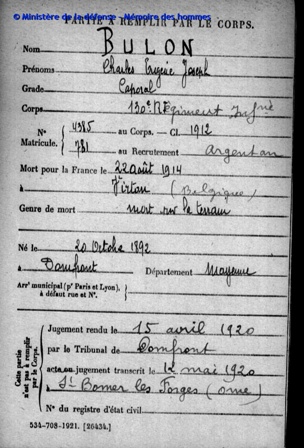 © Ministère de la défense - Mémoire des hommes
PARTIE A REMPLIR PAR LE CORPS.
Nom BULON
Prénoms Charles Eugène Joseph
Grade Caporal
Corps 130e Régiment Infrie
N° Matricule. 4385 au Corps. — Cl. 1912
781 au Recrutement Argentan
Mort pour la France le 22 août 1914
à Virton (Belgique)
Genre de mort mort sur le terrain
Né le 20 Octobre 1892
à Domfront Département Mayenne
Arrt municipal (pr Paris et Lyon),
à défaut rue et N°.
Cette partie n'est pas à remplir par le Corps.
Jugement rendu le 15 avril 1920
par le Tribunal de Domfront
acte ou jugement transcrit le 12 mai 1920
à St Bomer les Forges (Orne)
N° du registre d'état civil
534-708-1921. [26434.]